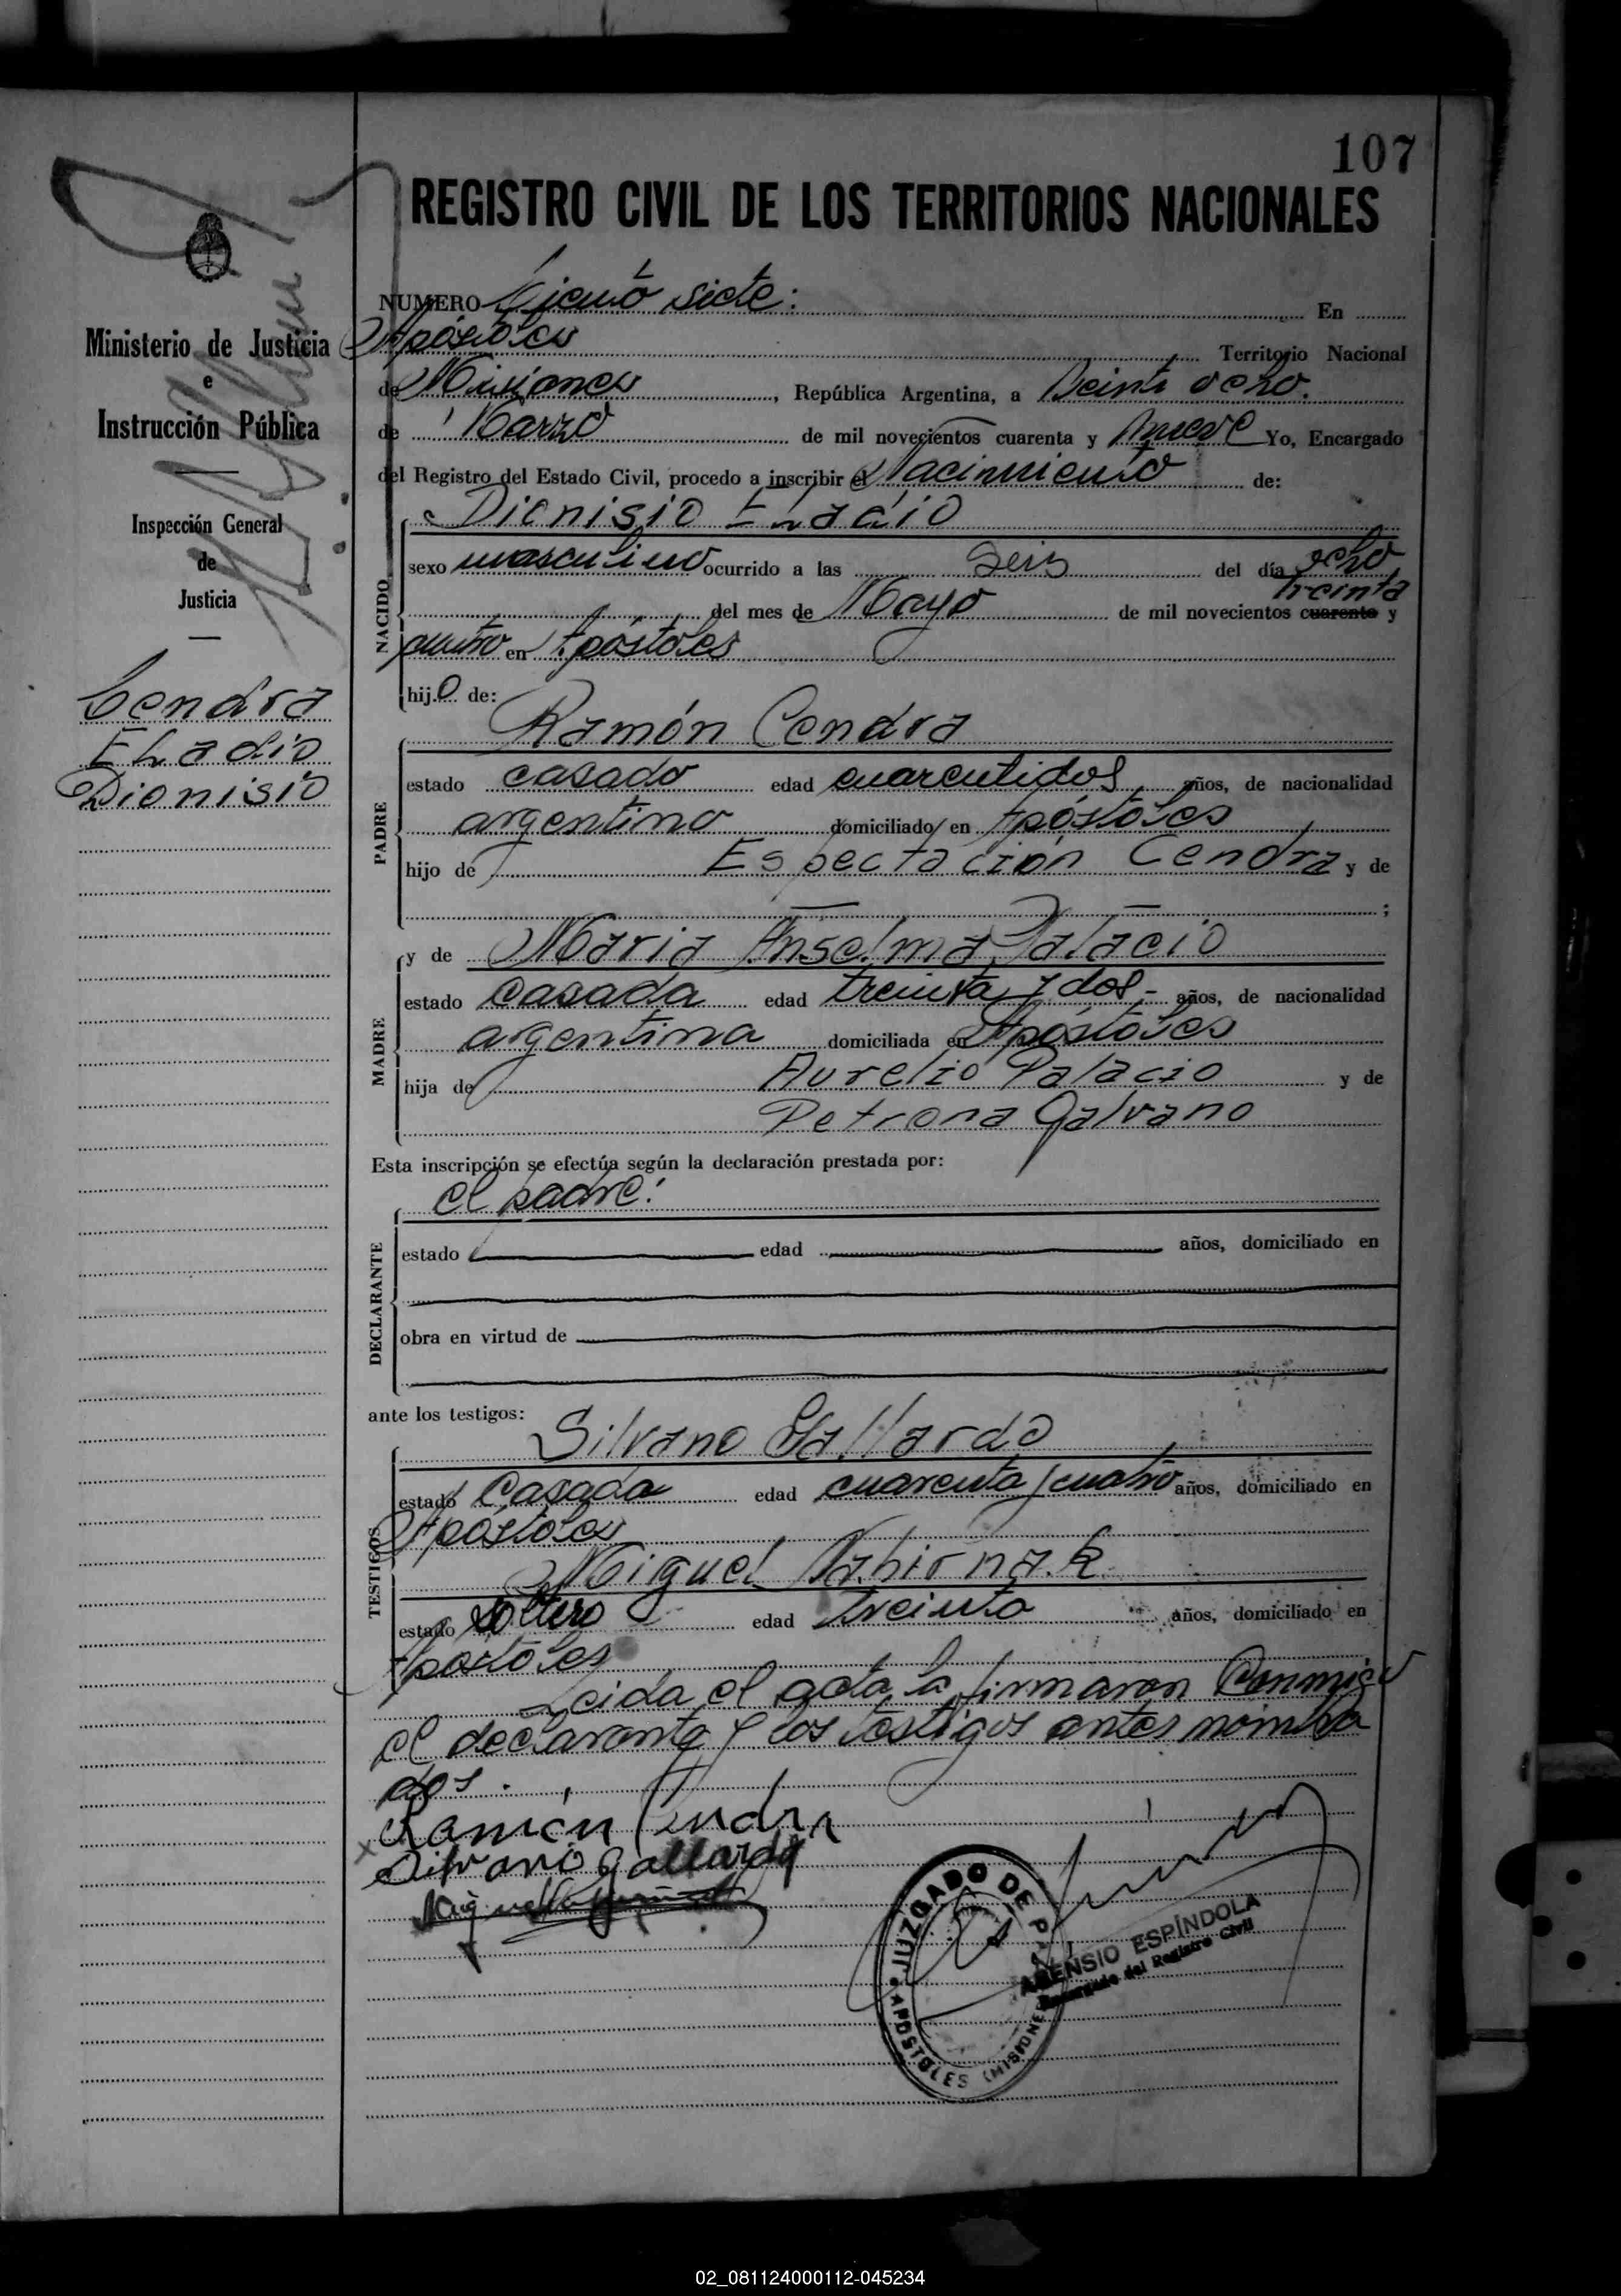 107
REGISTRO CIVIL DE LOS TERRITORIOS NACIONALES
Ministerio de Justicia
e
Instrucción Pública
Inspección General
de
Justicia
Cendra
Eladio
Dionisio
NUMERO Ciento siete: En
Apóstoles Territorio Nacional
de Misiones, República Argentina, a Veinte ocho.
de Marzo de mil novecientos cuarenta y nueve Yo, Encargado
del Registro del Estado Civil, procedo a inscribir el Nacimiento de:
NACIDO
Dionisio Eladio
sexo masculino ocurrido a las seis del día ocho
treinta
del mes de Mayo de mil novecientos cuarenta y
cuatro en Apóstoles
hijo de:
PADRE
Ramón Cendra
estado casado edad cuarentidos años, de nacionalidad
argentino domiciliado en Apóstoles
hijo de Espectación Cendra y de
;
MADRE
y de Maria Anselma Palacio
estado casada edad treinta y dos- años, de nacionalidad
argentina domiciliada en Apóstoles
hija de Aurelio Palacio y de
Petrona Galvano
Esta inscripción se efectúa según la declaración prestada por:
DECLARANTE
el padre:
estado edad años, domiciliado en
obra en virtud de
ante los testigos:
TESTIGOS
Silvano Gallardo
estado Casado edad cuarenta y cuatro años, domiciliado en
Apóstoles
Miguel Nahirnak
estado Soltero edad treinta años, domiciliado en
Apostoles
Leida el acta la firmaron Conmigo
el declarante y los testigos antes nombra
dos.
Ramón Cendra
Silvano Gallardo
Miguel
JUZGADO DE PAZ
APOSTOLES (MISIONES)
ASENSIO ESPÍNDOLA
Encargado del Registro Civil
02_081124000112-045234